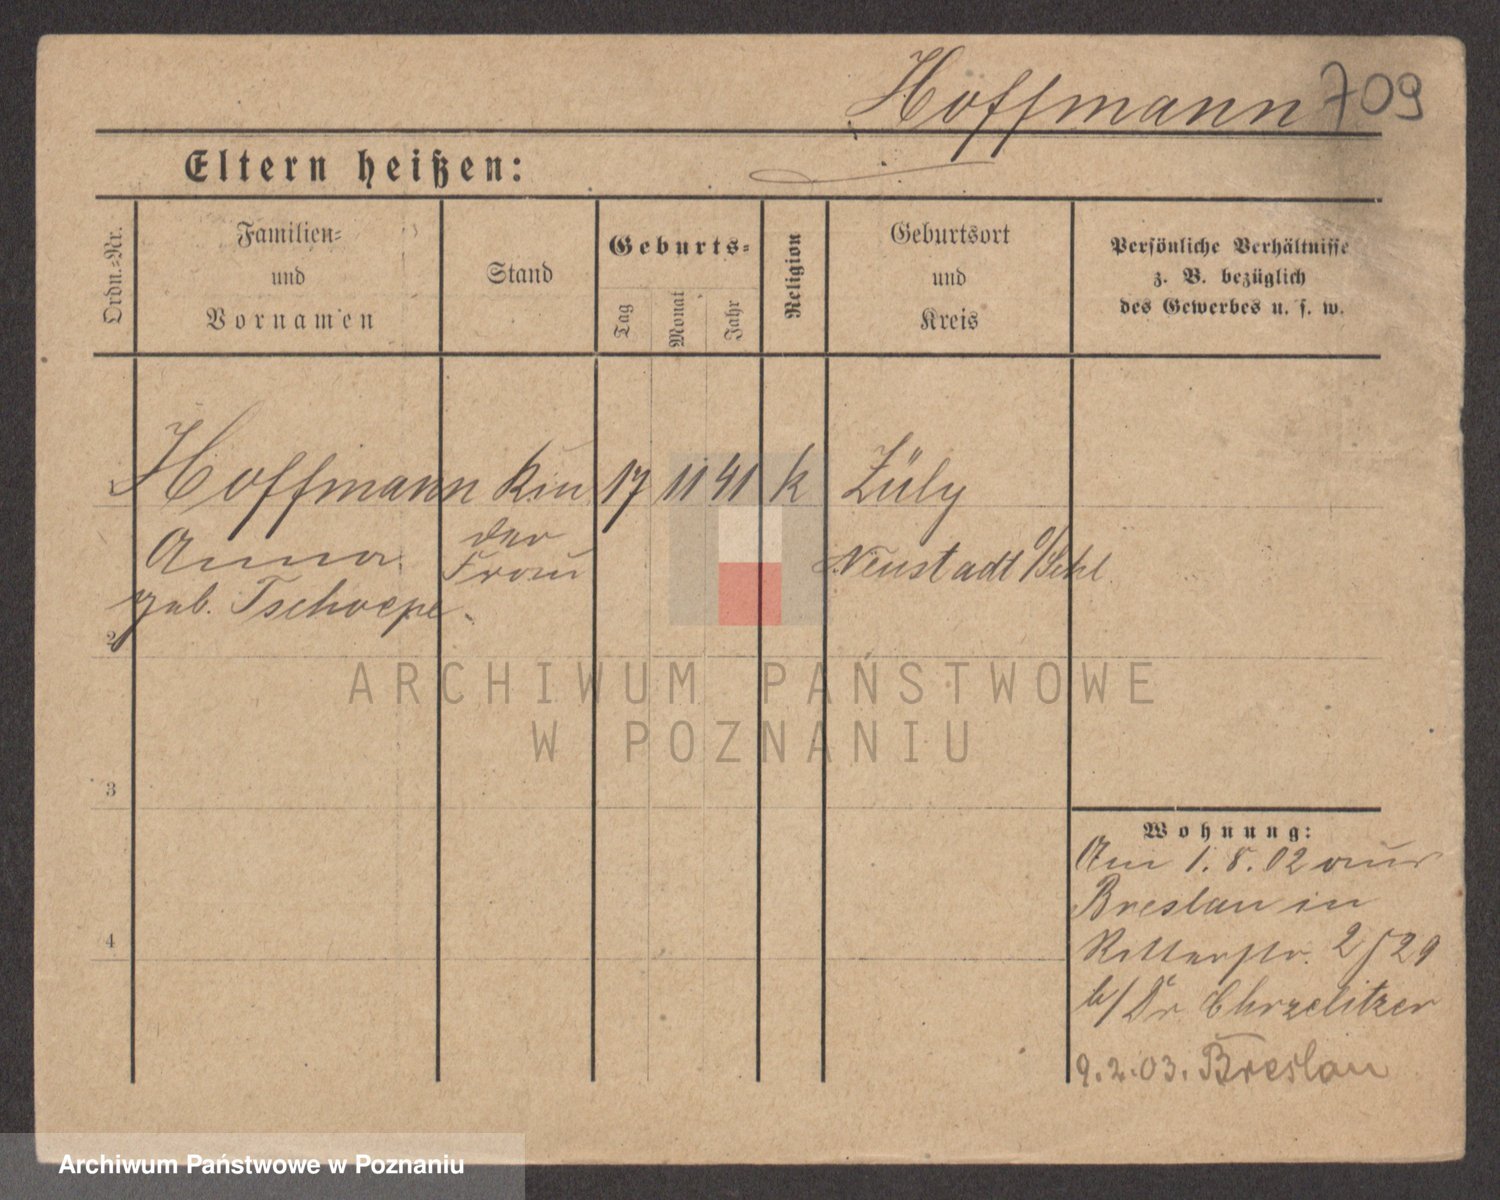 Hoffmann 709
Eltern heißen:
Ordn.-Nr.
Familien-
und
Vornamen
Stand
Geburts-
Tag
Monat
Jahr
Religion
Geburtsort
und
Kreis
Persönliche Verhältnisse
z. B. bezüglich
des Gewerbes u. s. w.
1 Hoffmann Kin 17 11 41 k Zülz
Anna
geb. Tschoepe
der
Frau
Neustadt
2
3
4
ARCHIWUM PAŃSTWOWE
W POZNANIU
Wohnung:
Am 1. 8. 02 aus
Breslau in
Ritterstr. 2/29
b/ Dr. Chrzelitzer
9.2.03. Breslau
Archiwum Państwowe w Poznaniu